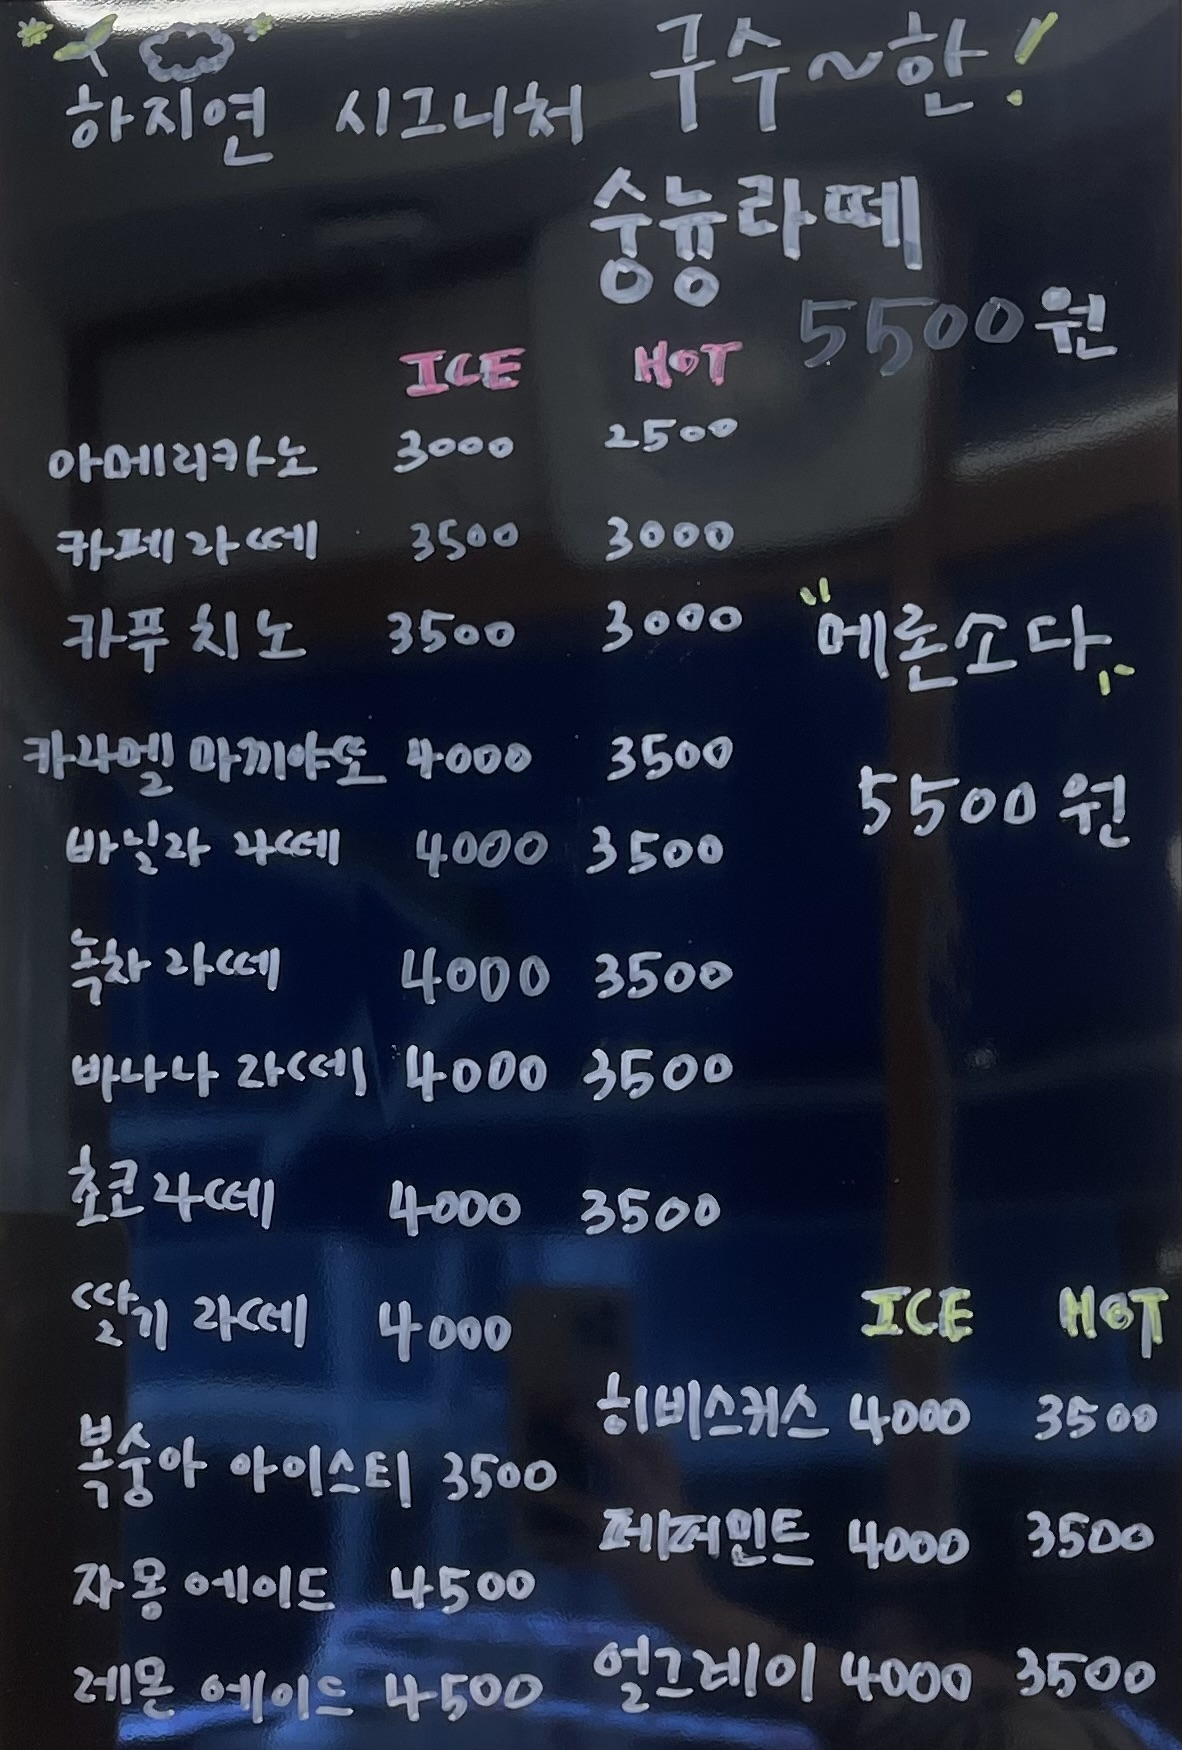 하지연 시그니처 구수~한!
숭늉라떼
5500원
ICE HOT
아메리카노 3000 2500
카페라떼 3500 3000
카푸치노 3500 3000
카라멜 마끼야또 4000 3500
바닐라 라떼 4000 3500
녹차 라떼 4000 3500
바나나 라떼 4000 3500
쵸코라떼 4000 3500
딸기 라떼 4000
복숭아 아이스티 3500
자몽 에이드 4500
레몬 에이드 4500
"메론소다"
5500원
ICE HOT
히비스커스 4000 3500
페퍼민트 4000 3500
얼그레이 4000 3500